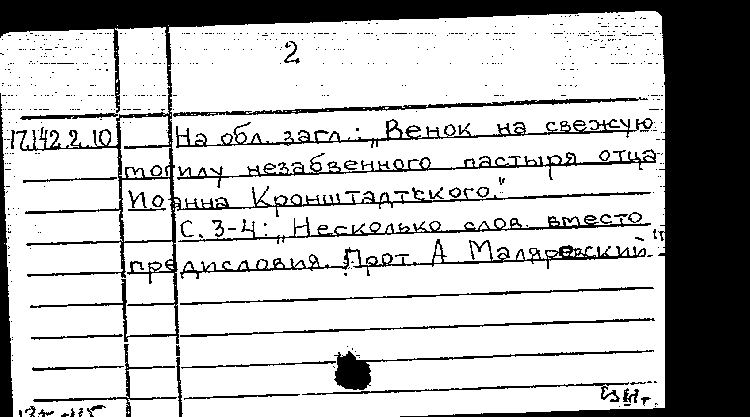 2
17.142.2.10 На обл. загл.: „Венок на свежую
могилу незабвенного пастыря отца
Иоанна Кронштадтского."
С. 3-4: „Несколько слов вместо
предисловия. Прот. А Маляревский"